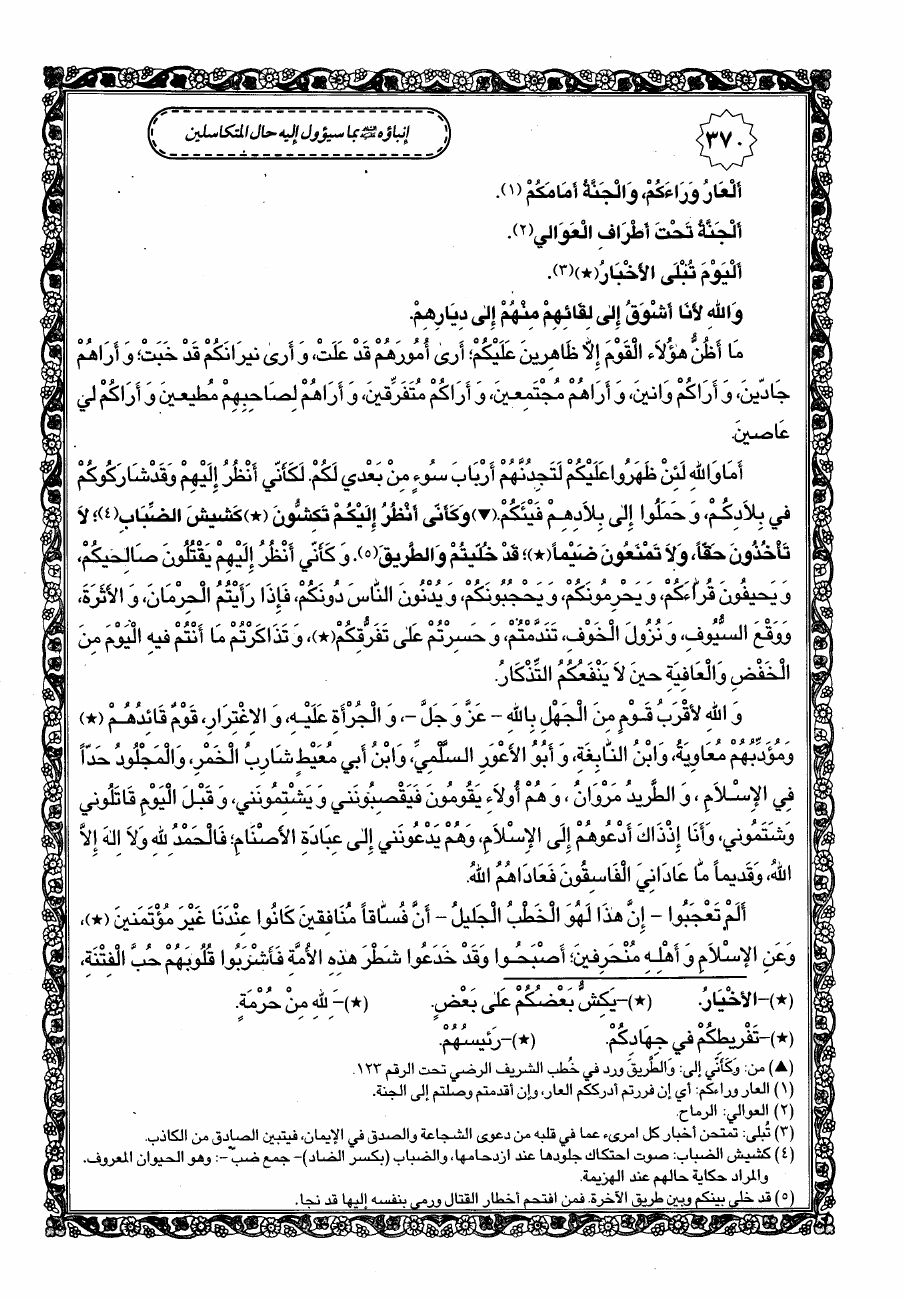 ٣٧٠
إنباؤه ﷺ بما سيؤول إليه حال المتكاسلين
أَلْعَارُ وَرَاءَكُمْ، وَالْجَنَّةُ أَمَامَكُمْ (١).
أَلْجَنَّةُ تَحْتَ أَطْرَافِ الْعَوَالي(٢).
أَلْيَوْمَ تُبْلَى الأَخْبَارُ(★)(٣).
وَاللهِ لأَنَا أَشْوَقُ إِلى لِقَائِهِمْ مِنْهُمْ إِلى دِيَارِهِمْ.
مَا أَظُنُّ هؤُلاَءِ الْقَوْمَ إِلاَّ ظَاهِرينَ عَلَيْكُمْ؛ أَرى أُمُورَهُمْ قَدْ عَلَتْ، وَ أَرى نيرَانَكُمْ قَدْ خَبَتْ؛ وَ أَرَاهُمْ
جَادّينَ، وَ أَرَاكُمْ وَانينَ، وَ أَرَاهُمْ مُجْتَمِعينَ، وَ أَرَاكُمْ مُتَفَرِّقينَ، وَ أَرَاهُمْ لِصَاحِبِهِمْ مُطيعينَ وَ أَرَاكُمْ لي
عَاصينَ.
أَمَاوَاللهِ لَئِنْ ظَهَرُواعَلَيْكُمْ لَتَجِدُنَّهُمْ أَرْبَابَ سُوءٍ مِنْ بَعْدي لَكُمْ. لَكَأَنّي أَنْظُرُ إِلَيْهِمْ وَقَدْشَارَكُوكُمْ
في بِلاَدِكُمْ، وَ حَمَلُوا إِلى بِلاَدِهِمْ فَيْئَكُمْ.(▼)وَكَأَنّى أَنْظُرُ إِلَيْكُمْ تَكِشُّونَ (★)كَشيشَ الضِّبَابِ(٤)؛ لاَ
تَأْخُذُونَ حَقّاً، وَلاَ تَمْنَعُونَ ضَيْماً(★)؛ قَدْ خُلّيتُمْ وَالطَّريقَ(٥). وَ كَأَنّي أَنْظُرُ إِلَيْهِمْ يَقْتُلُونَ صَالِحيكُمْ،
وَ يَحيفُونَ قُرَّاءَكُمْ، وَ يَحْرِمُونَكُمْ، وَ يَحْجُبُونَكُمْ، وَ يُدْنُونَ النَّاسَ دُونَكُمْ، فَإِذَا رَأَيْتُمُ الْحِرْمَانَ، وَ الأَثَرَةَ،
وَوَقْعَ السُّيُوفِ، وَ نُزُولَ الْخَوْفِ، تَنَدَّمْتُمْ، وَ حَسِرْتُمْ عَلى تَفَرُّقِكُمْ(★)، وَ تَذَاكَرْتُمْ مَا أَنْتُمْ فيهِ الْيَوْمَ مِنَ
الْخَفْضِ وَالْعَافِيَةِ حينَ لاَ يَنْفَعُكُمُ التِّذْكَارُ.
وَ اللهِ لأَقْرَبُ قَوْمٍ مِنَ الْجَهْلِ بِاللهِ - عَزَّ وَ جَلَّ -، وَ الْجُرْأَةِ عَلَيْهِ، وَ الاِغْتِرَارِ، قَوْمٌ قَائِدُهُمْ (★)
وَمُؤَدِّبُهُمْ مُعَاوِيَةُ، وَابْنُ النَّابِغَةِ، وَ أَبُو الأَعْوَرِ السُّلَّمِيِّ، وَابْنُ أَبي مُعَيْطٍ شَارِبُ الْخَمْرِ، وَالْمَجْلُودُ حَدّاً
فِي الإِسْلاَمِ ، وَ الطَّريدُ مَرْوَانُ ، وَ هُمْ أُولاَءِ يَقُومُونَ فَيَقْصِبُونَني وَ يَشْتِمُونَني، وَ قَبْلَ الْيَوْمِ قَاتَلُوني
وَشَتَمُوني، وَأَنَا إِذْذَاكَ أَدْعُوهُمْ إِلَى الإِسْلاَمِ، وَهُمْ يَدْعُونَني إِلى عِبَادَةِ الأَصْنَامِ؛ فَالْحَمْدُ للهِ وَلاَ اِلهَ إِلاَّ
اللهُ، وَقَديماً مَّا عَادَانِيَ الْفَاسِقُونَ فَعَادَاهُمُ اللهُ.
أَلَمْ تَعْجَبُوا - إِنَّ هذَا لَهُوَ الْخَطْبُ الْجَليلُ - أَنَّ فُسَّاقاً مُنَافِقينَ كَانُوا عِنْدَنَا غَيْرَ مُؤْتَمَنينَ (★)،
وَعَنِ الإِسْلاَمِ وَ أَهْلِهِ مُنْحَرِفينَ؛ أَصْبَحُوا وَقَدْ خَدَعُوا شَطْرَ هذِهِ الأُمَّةِ فَأَشْرَبُوا قُلُوبَهُمْ حُبَّ الْفِتْنَةِ،
(★)-الأَخْيَارُ. (★)-يَكِشُّ بَعْضُكُمْ عَلى بَعْضٍ. (★)- لِلهِ مِنْ حُرْمَةٍ.
(★)-تَفْريطِكُمْ في جِهَادِكُمْ. (★)-رَئيسُهُمْ.
(▲) من: وَكَأَنّي إلى: وَالطَّريقَ ورد في خُطب الشريف الرضي تحت الرقم ١٢٣.
(١) العار وراءكم: أي إن فررتم أدرككم العار، وإن أقدمتم وصلتم إلى الجنة.
(٢) العوالي: الرماح.
(٣) تُبلى: تمتحن أخبار كل امرىء عما في قلبه من دعوى الشجاعة والصدق في الإيمان، فيتبين الصادق من الكاذب.
(٤) كشيش الضباب: صوت احتكاك جلودها عند ازدحامها، والضباب (بكسر الضاد)- جمع ضبّ -: وهو الحيوان المعروف.
والمراد حكاية حالهم عند الهزيمة.
(٥) قد خلي بينكم وبين طريق الآخرة. فمن اقتحم أخطار القتال ورمى بنفسه إليها قد نجا.